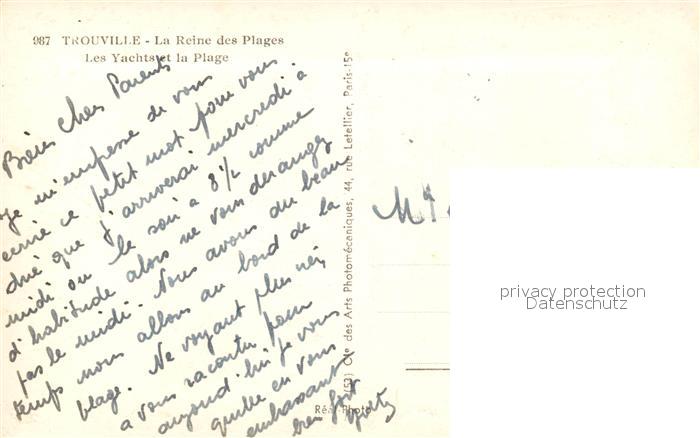 987 TROUVILLE - La Reine des Plages
Les Yachts et la Plage
Biens Chers Parents
Je m'empesse de vous
écrire ce petit mot pour vous
dire que j'arriverai mercredi à
midi ou le soir à 8½ comme
d'habitude alors ne vous derangez
pas le midi. Nous avons du beau
temps nous allons au bord de la
plage. Ne voyant plus rien
a vous raconter pour
aujourd'hui je vous
quitte en vous
embrassant
bien fort
(53) Cie des Arts Photomécaniques, 44, rue Letellier, Paris-15e
Réal-Photo
privacy protection
Datenschutz